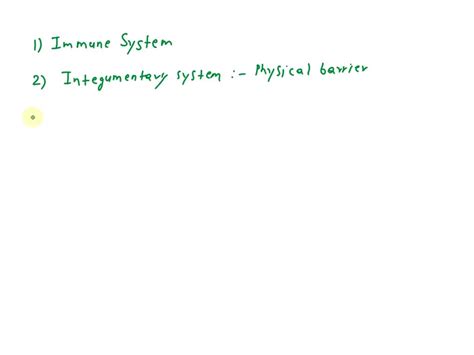 1) Immune System
2) Integumentary system :- Physical barrier